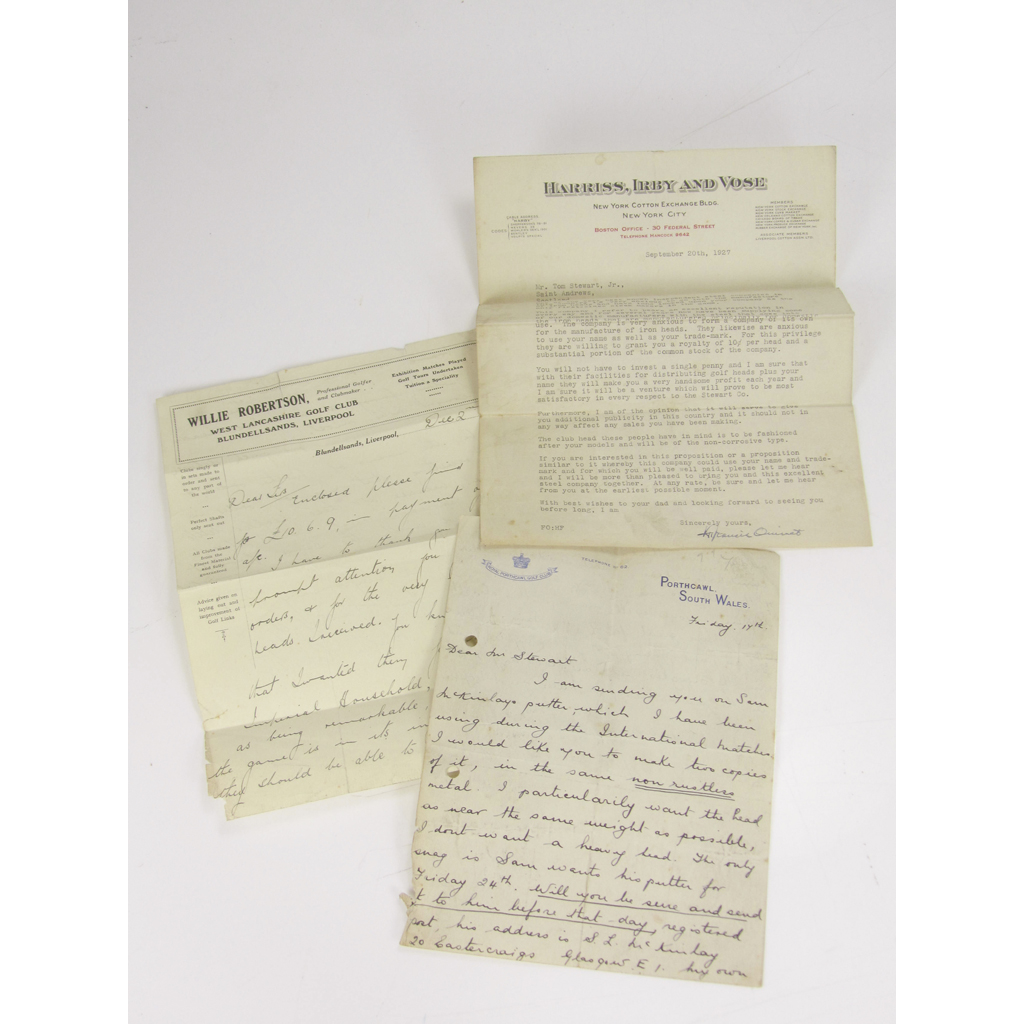 HARRISS, IRBY AND VOSE
NEW YORK COTTON EXCHANGE BLDG.
NEW YORK CITY
BOSTON OFFICE - 30 FEDERAL STREET
TELEPHONE HANCOCK 6642
MEMBERS
ASSOCIATE MEMBERS
September 20th, 1927
Mr. Tom Stewart, Jr.,
Saint Andrews,
use. The company is very anxious to form a company of its own
for the manufacture of iron heads. They likewise are anxious
to use your name as well as your trade-mark. For this privilege
they are willing to grant you a royalty of 10¢ per head and a
substantial portion of the common stock of the company.
You will not have to invest a single penny and I am sure that
with their facilities for distributing golf heads plus your
name they will make you a very handsome profit each year and
I am sure it will be a venture which will prove to be most
satisfactory in every respect to the Stewart Co.
Furthermore, I am of the opinion that it will serve to give
you additional publicity in this country and it should not in
any way affect any sales you have been making.
The club head these people have in mind is to be fashioned
after your models and will be of the non-corrosive type.
If you are interested in this proposition or a proposition
similar to it whereby this company could use your name and trade-
mark and for which you will be well paid, please let me hear
and I will be more than pleased to bring you and this excellent
steel company together. At any rate, be sure and let me hear
from you at the earliest possible moment.
With best wishes to your dad and looking forward to seeing you
before long, I am
Sincerely yours,
FO:MF
Francis Ouimet
WILLIE ROBERTSON,
Professional Golfer
and Clubmaker
WEST LANCASHIRE GOLF CLUB
BLUNDELLSANDS, LIVERPOOL
Exhibition Matches Played
Golf Tours Undertaken
Tuition a Speciality
Blundellsands, Liverpool,
Dec 2
Perfect Shafts
only sent out
All Clubs made
from the
Finest Material
and fully
guaranteed
Advice given on
laying out and
improvement of
Golf Links
Dear Sir Enclosed please find
for £10.6.9, — payment
a/c. I have to thank
prompt attention
orders, & for the very
heads I received.
that I wanted them
Imperial Household,
as being remarkable,
the game is in its
they should be able to
ROYAL PORTHCAWL GOLF CLUB
PORTHCAWL,
SOUTH WALES.
Friday, 17th.
Dear Mr Stewart
I am sending you on Sam
McKinlays putter, which I have been
using during the International matches
I would like you to make two copies
of it, in the same non rustless
metal. I particularily want the head
as near the same weight as possible,
I dont want a heavy head. The only
snag is Sam wants his putter for
Friday 24th. Will you be sure and send
it to him before that day, registered
post, his address is S. L. McKinlay
20 Eastercraigs Glasgow. E 1. my own